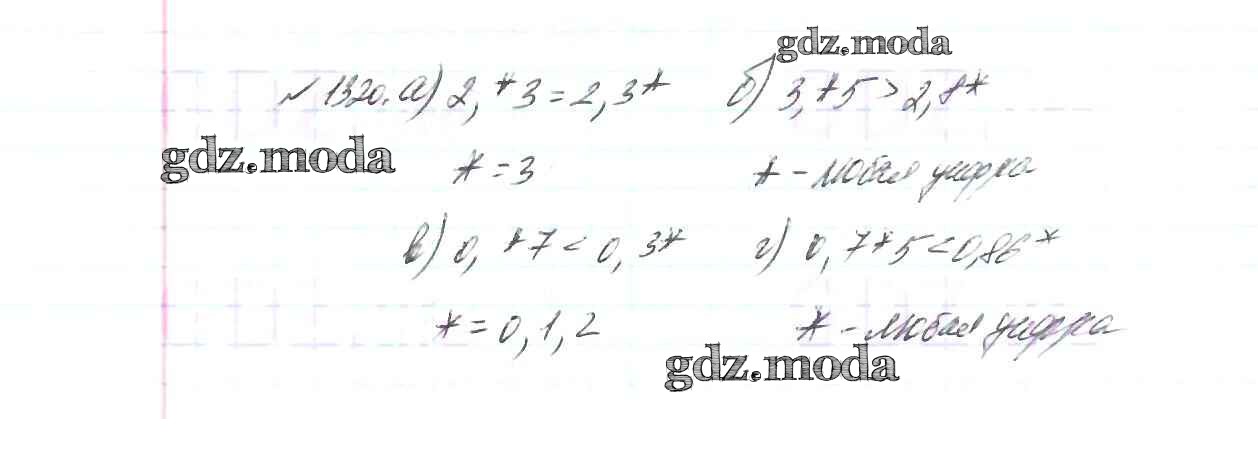 gdz.moda
№ 1320. а) 2,*3 = 2,3* б) 3,*5 > 2,8*
gdz.moda
* = 3 * - любая цифра
в) 0,*7 < 0,3* г) 0,7*5 < 0,86*
* = 0, 1, 2 * - любая цифра
gdz.moda